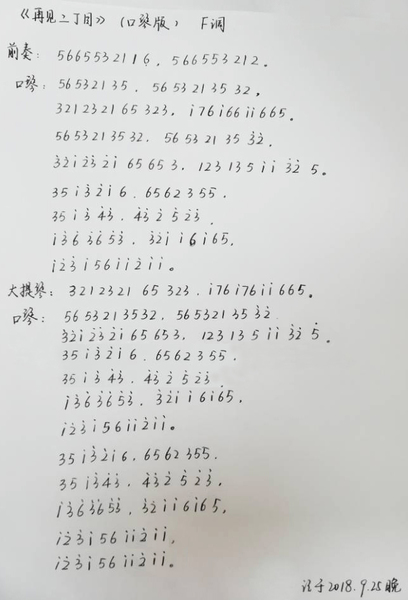 《再见二丁目》（口琴版） F调
前奏: 5665532116, 566553212。
口琴: 56532135. 5653213532.
3212321 65 323, i76i66ii665。
5653213532. 56532135 3̇2̇.
3̇2̇i2̇3̇2̇i 65653. 123135ii 3̇2̇5。
35i3̇2̇i6. 6562355.
35i3̇4̇3̇. 4̇3̇2̇52̇3̇.
i3̇6̇3̇6̇5̇3̇. 3̇2̇ii6i65,
i2̇3̇i56ii2̇ii。
大提琴: 3212321 65 323. i76i76ii665。
口琴: 5653213532. 56532135 3̇2̇.
3̇2̇i2̇3̇2̇i 65653, 123135ii 3̇2̇5̇.
35i3̇2̇i6. 6562355.
35i3̇4̇3̇. 4̇3̇2̇52̇3̇
i3̇6̇3̇6̇5̇3̇. 3̇2̇ii6i65.
i2̇3̇i56ii2̇ii.
35i3̇2̇i6. 6562355.
35i3̇4̇3̇. 4̇3̇2̇52̇3̇,
i3̇6̇3̇6̇5̇3̇. 3̇2̇ii6i65,
i2̇3̇i56ii2̇ii,
i2̇3̇i56ii2̇ii。
注于2018.9.25晚